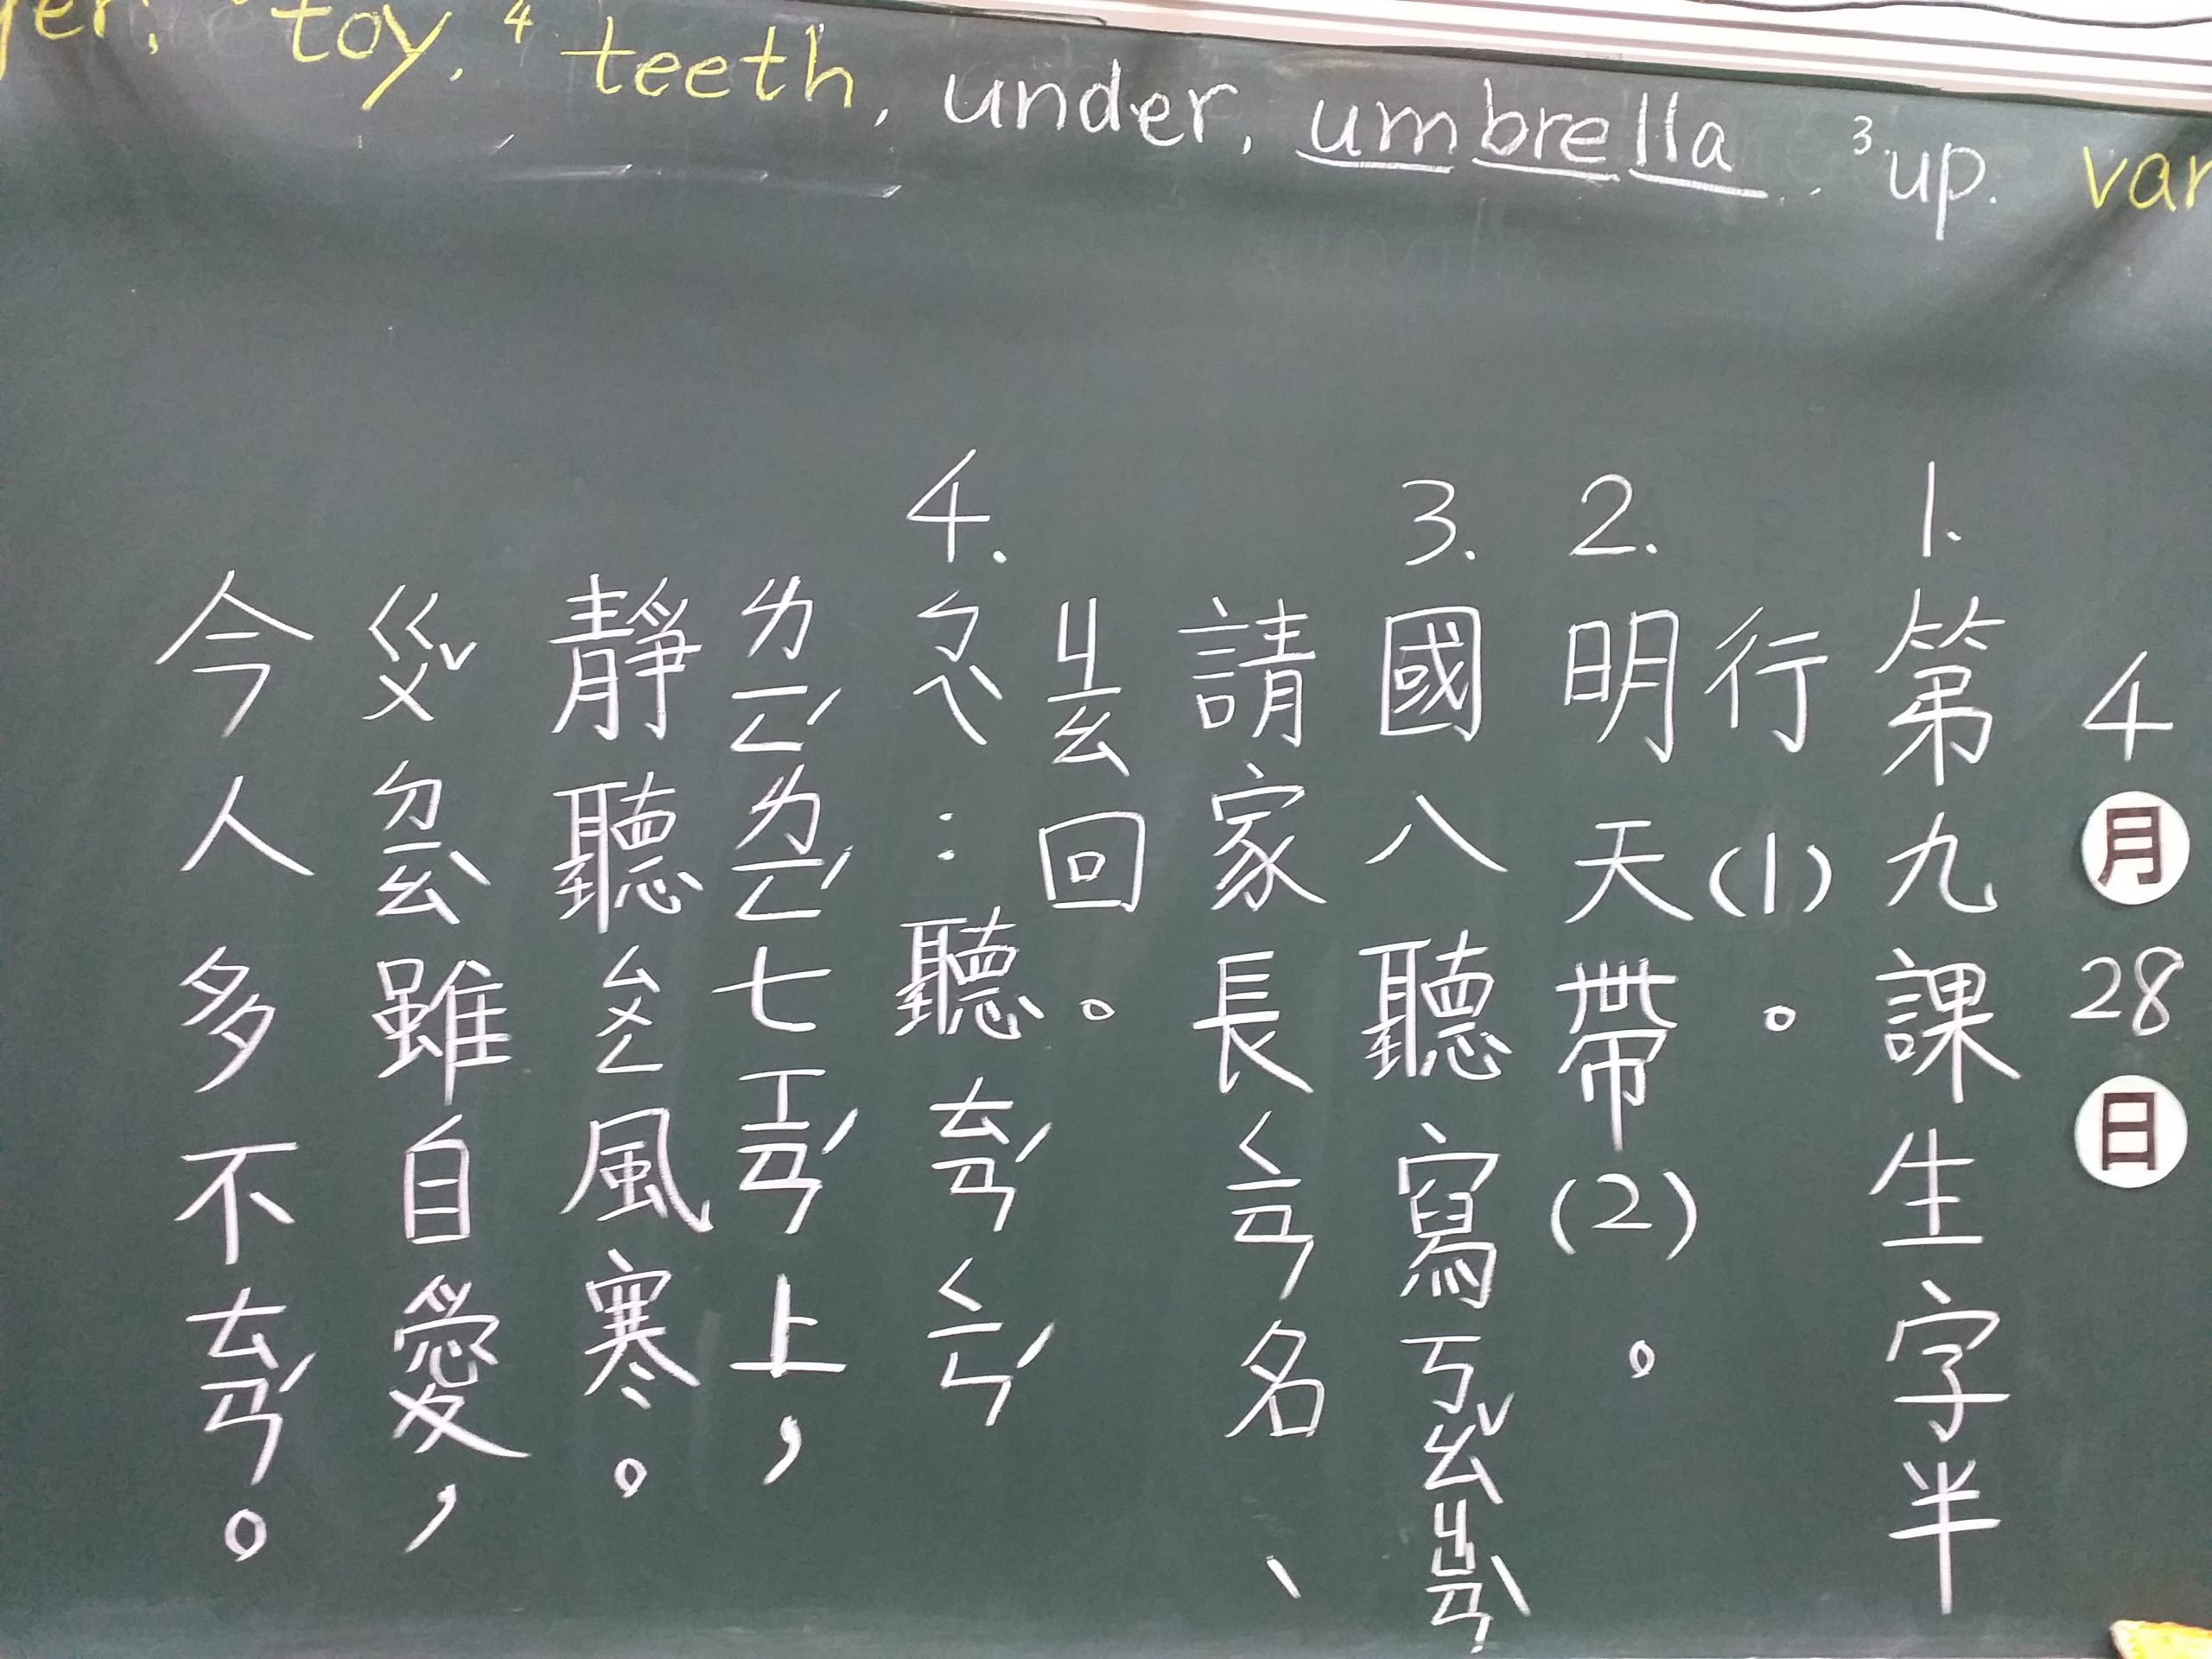 toy, 4 teeth, under, umbrella. 3. up.
4月28日
1.第九課生字半
行(1)。
2.明天帶(2)。
3.國八聽寫ㄎㄠˇㄐㄩㄢˋ
請家長ㄑㄧㄢ名、
ㄐㄧㄠ回。
4.ㄅㄟˋ:聽ㄊㄢˊㄑㄧㄣˊ
ㄌㄧㄥˊㄌㄧㄥˊ七ㄒㄧㄢˊ上,
靜聽ㄙㄨㄥ風寒。
ㄍㄨˇㄉㄧㄠˋ雖自愛,
今人多不ㄊㄢˊ。